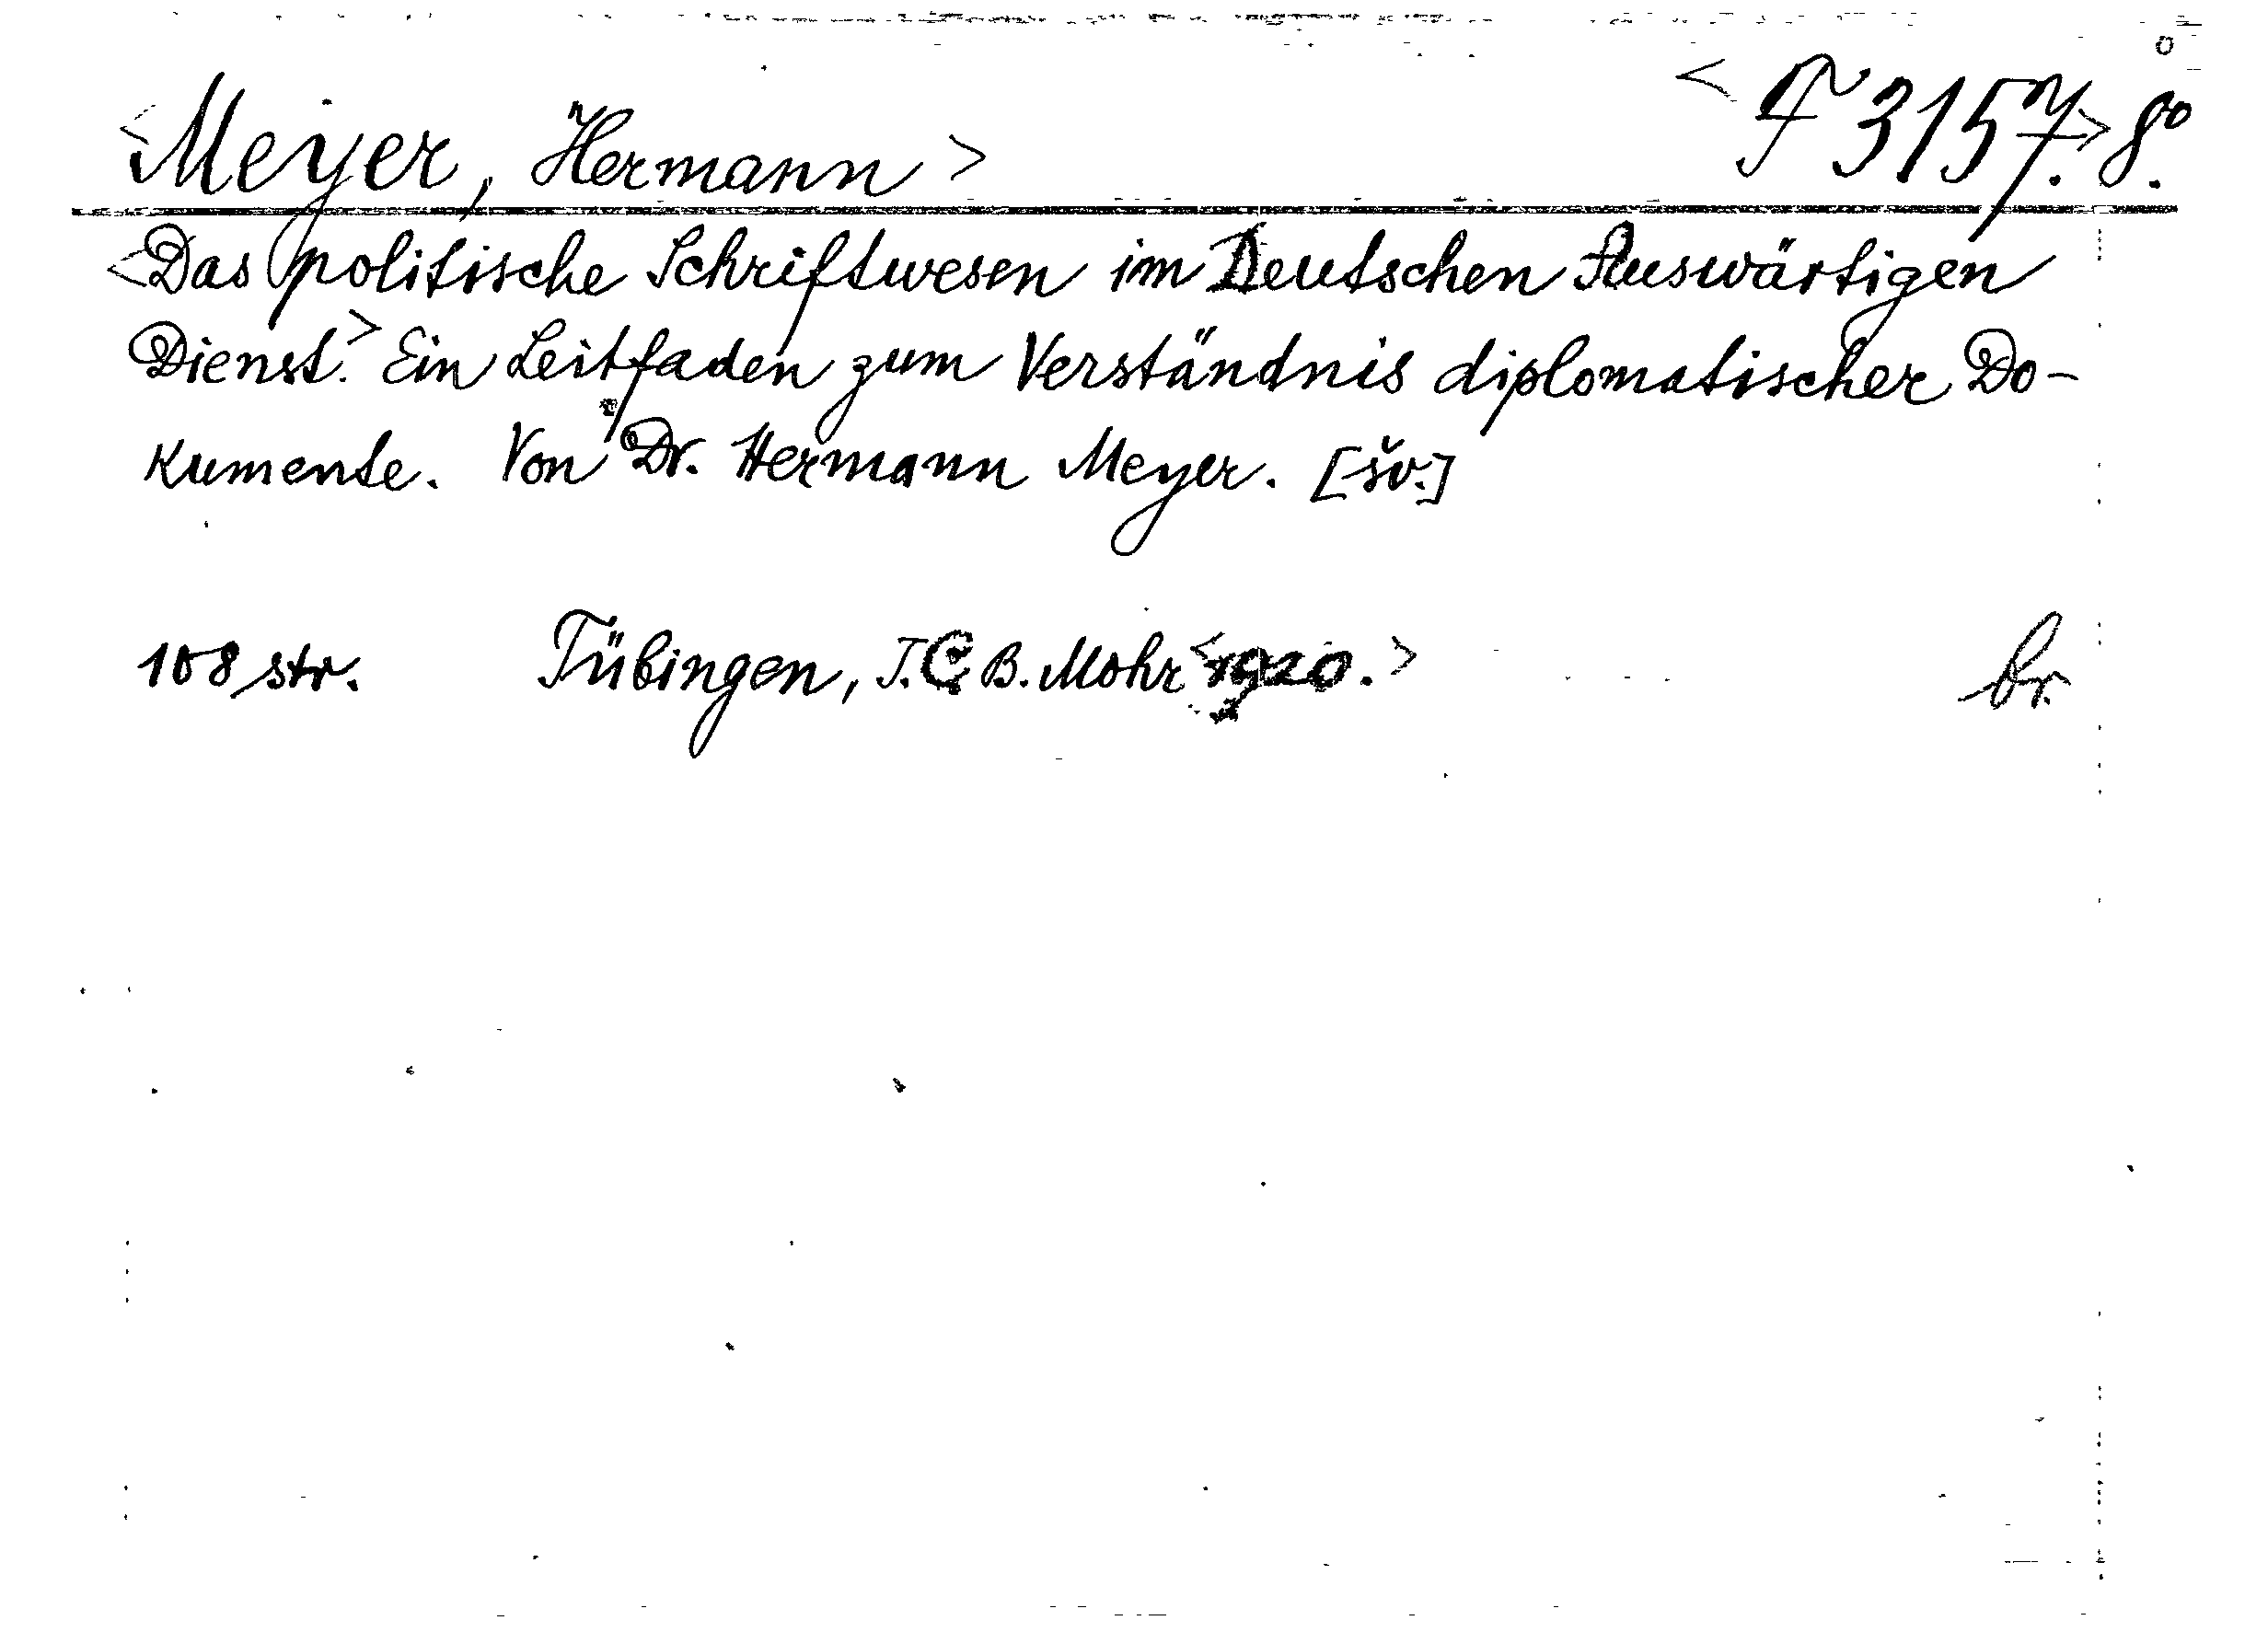 <Meyer, Hermann> <F 3157.> 8º.
<Das politische Schriftwesen im Deutschen Auswärtigen
Dienst.> Ein Leitfaden zum Verständnis diplomatischer Do-
kumente. Von Dr. Hermann Meyer. [šv.]
108 str. Tübingen, J.C.B. Mohr <1920.> br.